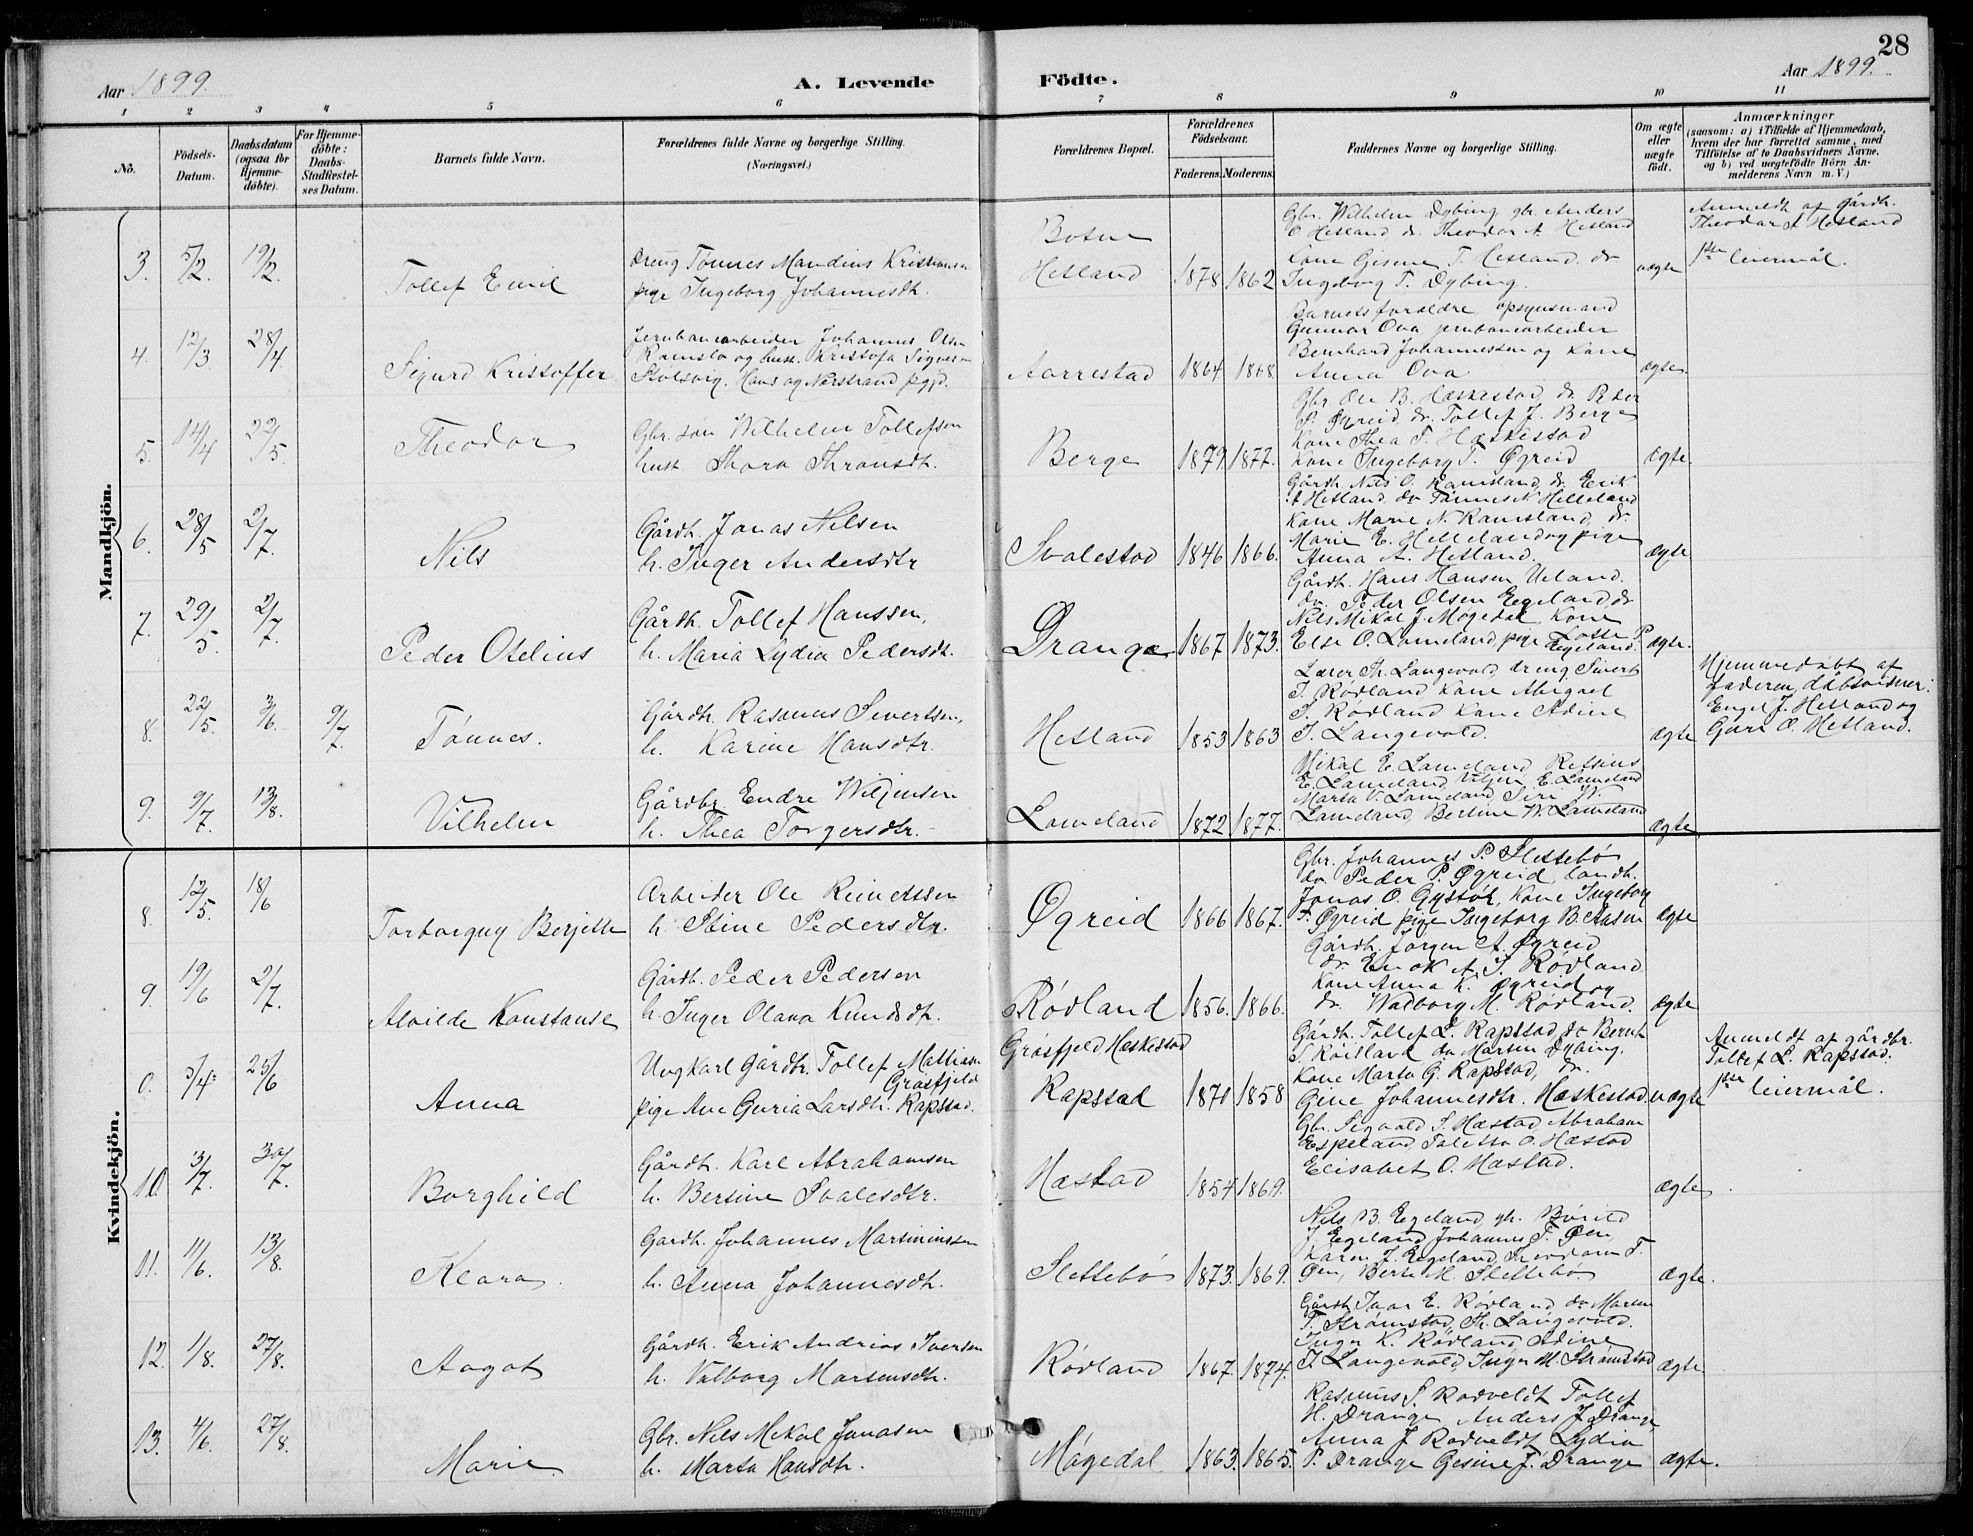 28
Aar 1899.
A. Levende Födte.
Aar 1899.
1 2 3 4 5 6 7 8 9 10 11
No.
Födsels-Datum.
Daabsdatum (ogsaa for Hjemme-döbte).
For Hjemme-döbte: Daabs-Stadfæstel-ses Datum.
Barnets fulde Navn.
Forældrenes fulde Navne og borgerlige Stilling.
(Næringsvei.)
Forældrenes Bopæl.
Forældrenes Födselsaar.
Faderens. Moderens.
Faddernes Navne og borgerlige Stilling.
Om ægte eller uægte födt.
Anmærkninger
(saasom: a) i Tilfælde af Hjemmedaab,
hvem der har forrettet samme, med
Tilföielse af to Daabsvidners Navne.
og b) ved uægtefödte Börn An-
melderens Navn m. V.)
Mandkjön.
3. 5/2. 19/2. Tollef Emil
Dreng Tønnes Mandius Kristiansen
pige Ingeborg Johannesdtr.
Hetland 1878 1862
Gbr. Wilhelm Dybing gbr. Anders
O Hetland do Theodor A. Hetland
Kone Gesine T. Hetland. do
Ingeborg T. Dybing.
uægte
Anmeldt af Gårdbr.
Theodor A Hetland
1ste leiermål.
4. 12/3. 28/4. Sigurd Kristoffer
Jernbanearbeider Johannes Olsen
Ramslo og hust. Kristofa
Aarrestad 1864. 1868.
Barnets forældre opsynsmand
Gunnar Ova jernbanearbeider
Bernhard Johannessen og Kone
Anna Ova
ægte.
5. 14/4 22/5. Theodor
Gbr. søn Wilhelm Tollefsen
hust. Thora Thronsdtr.
Berge 1879. 1877.
Gbr Ole B. Hæskestad, do Peter
P. Øgreid, do Tollef J. Berge
Kone Thea T. Hæskestad
Kone Ingeborg T. Øgreid
ægte.
6. 28/5 2/7. Nils
Gårdbr. Jonas Nilsen
h. Inger Andersdtr
Svalestad 1846 1866.
Gårdbr. Nils O. Ramsland, do Erik
A Hetland do Tønnes K Helleland
Kone Marie N. Ramsland, do
Marie E. Helleland og pige
Anna A. Hetland.
ægte
7. 29/5. 2/7. Peder Otelius
Gårdbr. Tollef Hanssen,
h. Maria Lydia Pedersdtr.
Drange 1867 1873.
Gårdbr. Hans Hansen Ueland.
do Peder Olsen Eegeland, do
Nils Mikal J. Møgedal Kone
Else O. Lameland, pige Lotte P.
Eegeland.
ægte.
8. 22/5. 3/6. 9/7. Tønnes.
Gårdbr. Rasmus Sivertsen,
h. Karine Hansdtr.
Hetland 1853 1863
Lærer Th. Langevold, dreng Sivert
J. Rødland Kone Abigael
S. Rødland Kone Adine
T. Langevold.
ægte
Hjemmedøbt af
faderen, dåbsvidner:
Engel J. Hetland og
Guri O. Hetland.
9. 9/7. 13/8. Vilhelm
Gårdbr Endre Wiljensen
h. Thea Torgersdtr.
Lameland 1872. 1877.
Mikal E. Lameland Refsius
E. Lameland Viljen E. Lameland
Marta V. Lameland Siri W.
Lameland, Bertine W. Lameland
ægte
Kvindekjön.
8. 12/5. 18/6 Torborguy Berjette
Arbeider Ole Reinertsen
h. Stine Pedersdtr.
Øgreid 1866 1867.
Gbr. Johannes P. Slettebø
do Peder P. Øgreid, landh.
Jonas O. Gystøl, Kone Ingeborg
T. Øgreid pige Ingeborg B. Aasen
ægte
9. 19/6 2/7. Alvilde Konstanse
Gårdbr. Peder Pedersen
h. Inger Olava Knudsdtr.
Rødland 1856. 1866.
Gårdbr. Jørgen A. Øgreid
do Enok A. J. Rødland
Kone Anna K. Øgreid og
do Walborg M. Rødland.
ægte
0. 5/4. 25/6 Anna
Ungkarl gårdbr. Tollef Mattiasen
Grøsfjeld
pige Ane Guria Larsdtr. Rapstad.
Grøsfjeld Hæskestad
Rapstad 1870 1858
Gårdbr. Tollef L. Rapstad, do Bernt
S. Røitland do Martin Dybing.
Kone Marta G. Rapstad, do
Gine Johannesdtr. Hæskestad.
uægte
Anmeldt af gårdbr.
Tollef L. Rapstad.
1ste leiermål.
10. 3/7. 30/7. Borghild
Gårdbr. Karl Abrahamsen
h. Bertine Svalesdtr.
Hæstad 1854 1869.
Gbr. Sigvald S. Hæstad Abraham
Espeland, Taletta O. Hæstad
Elisabet O. Hæstad.
ægte
11. 11/6. 13/8. Klara
Gårdbr. Johannes Martiniussen
h. Anna Johannesdtr.
Slettebø 1873. 1869.
Nils B. Egeland, gbr.
J Egeland Johannes T. Øen
Karen J. Eegeland, Theodora T.
Øen, Berte M. Slettebø.
ægte.
12. 1/8. 27/8. Aagot
Gårdbr. Erik Andrias Iversen
h. Valborg Martensdtr.
Rødland 1867. 1874.
Gårdbr Ivar E. Rødland do Marten
T. Strømstad, Th. Langevold.
Inger K. Rødland Adine
T. Langevold, Inger M. Strømstad
ægte
13. 4/6. 27/8. Marie
Gbr. Nils Mekal Jonasen
h. Marta Hansdtr.
Møgedal 1863. 1865.
Rasmus S. Rodveldt Tollef
H. Drange Anders J Drange
Anna J Rodveldt Lydia
P. Drange Gesine J. Drange
ægte.